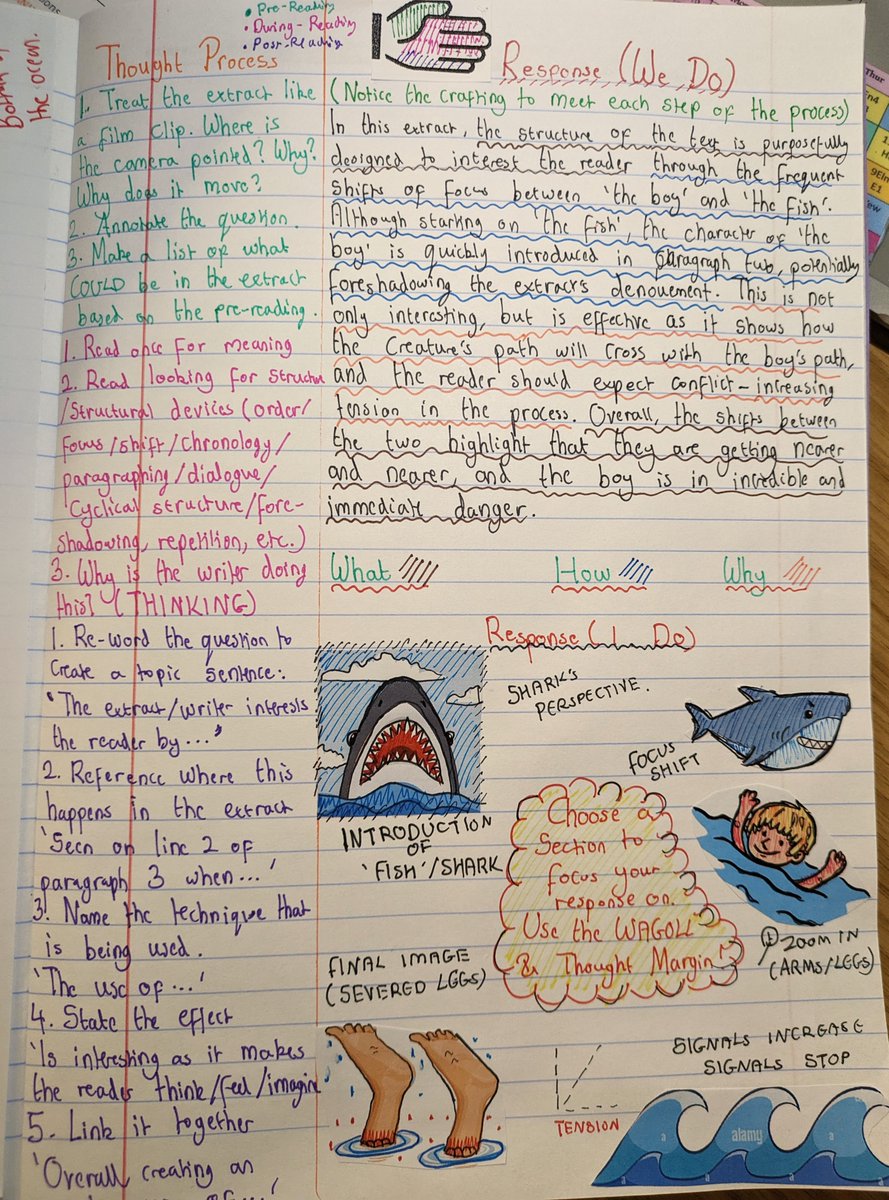 Bottom of
the ocean.
• Pre-Reading
• During-Reading
• Post-Reading
Thought Process
1. Treat the extract like
a film clip. Where is
the camera pointed? Why?
Why does it move?
2. Annotate the question.
3. Make a list of what
COULD be in the extract
based on the pre-reading.
1. Read once for meaning
2. Read looking for structure
/structural devices (order/
focus/shift/chronology/
paragraphing/dialogue/
cyclical structure/fore-
shadowing, repetition, etc.)
3. Why is the writer doing
this? (THINKING)
1. Re-word the question to
create a topic sentence:
'The extract/writer interests
the reader by...'
2. Reference where this
happens in the extract
'Seen on line 2 of
paragraph 3 when...'
3. Name the technique that
is being used.
'The use of...'
4. State the effect
'Is interesting as it makes
the reader think/feel/imagine
5. Link it together
'Overall creating an
Response (We Do)
(Notice the crafting to meet each step of the process)
In this extract, the structure of the text is purposefully
designed to interest the reader through the frequent
shifts of focus between 'the boy' and 'the fish'.
Although starting on 'the fish', the character of 'the
boy' is quickly introduced in paragraph two, potentially
foreshadowing the extract's denouement. This is not
only interesting, but is effective as it shows how
the creature's path will cross with the boy's path,
and the reader should expect conflict - increasing
tension in the process. Overall, the shifts between
the two highlight that they are getting nearer
and nearer, and the boy is in incredible and
immediate danger.
What How Why
Response (I Do)
SHARK'S
PERSPECTIVE.
FOCUS
SHIFT
INTRODUCTION
OF
'FISH'/SHARK
Choose a
section to
focus your
response on.
Use the WAGOLL
& Thought Margin!
ZOOM IN
(ARMS/LEGS)
FINAL IMAGE
(SEVERED LEGS)
SIGNALS INCREASE
SIGNALS STOP
TENSION
a alamy a
a a
Thur
9En
E1